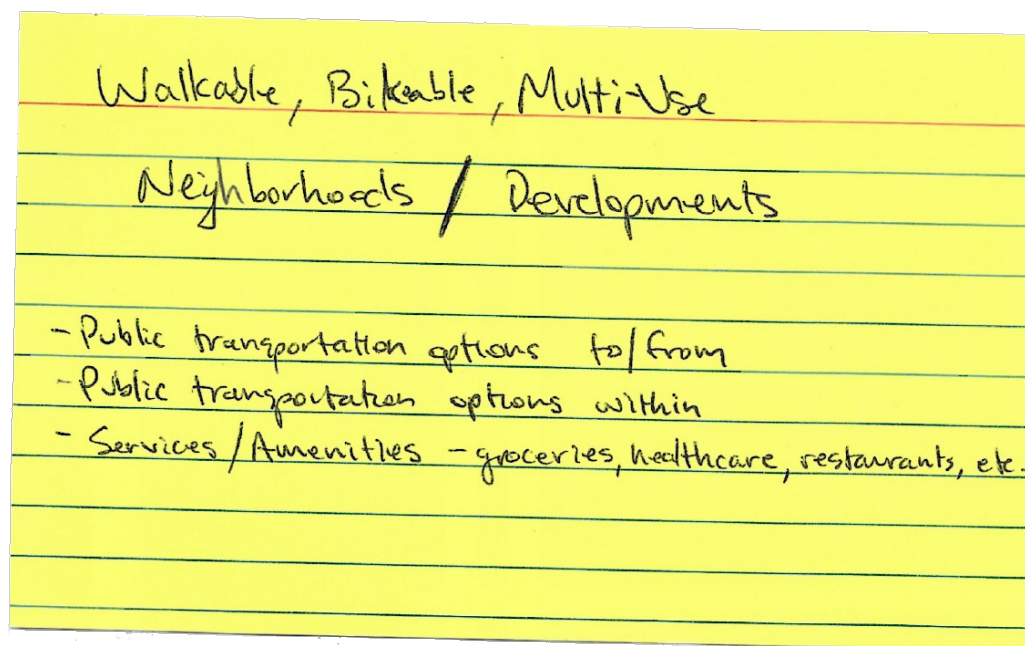 Walkable, Bikeable, Multi-Use
Neighborhoods / Developments
- Public transportation options to/from
- Public transportation options within
- Services/Amenities - groceries, healthcare, restaurants, etc.